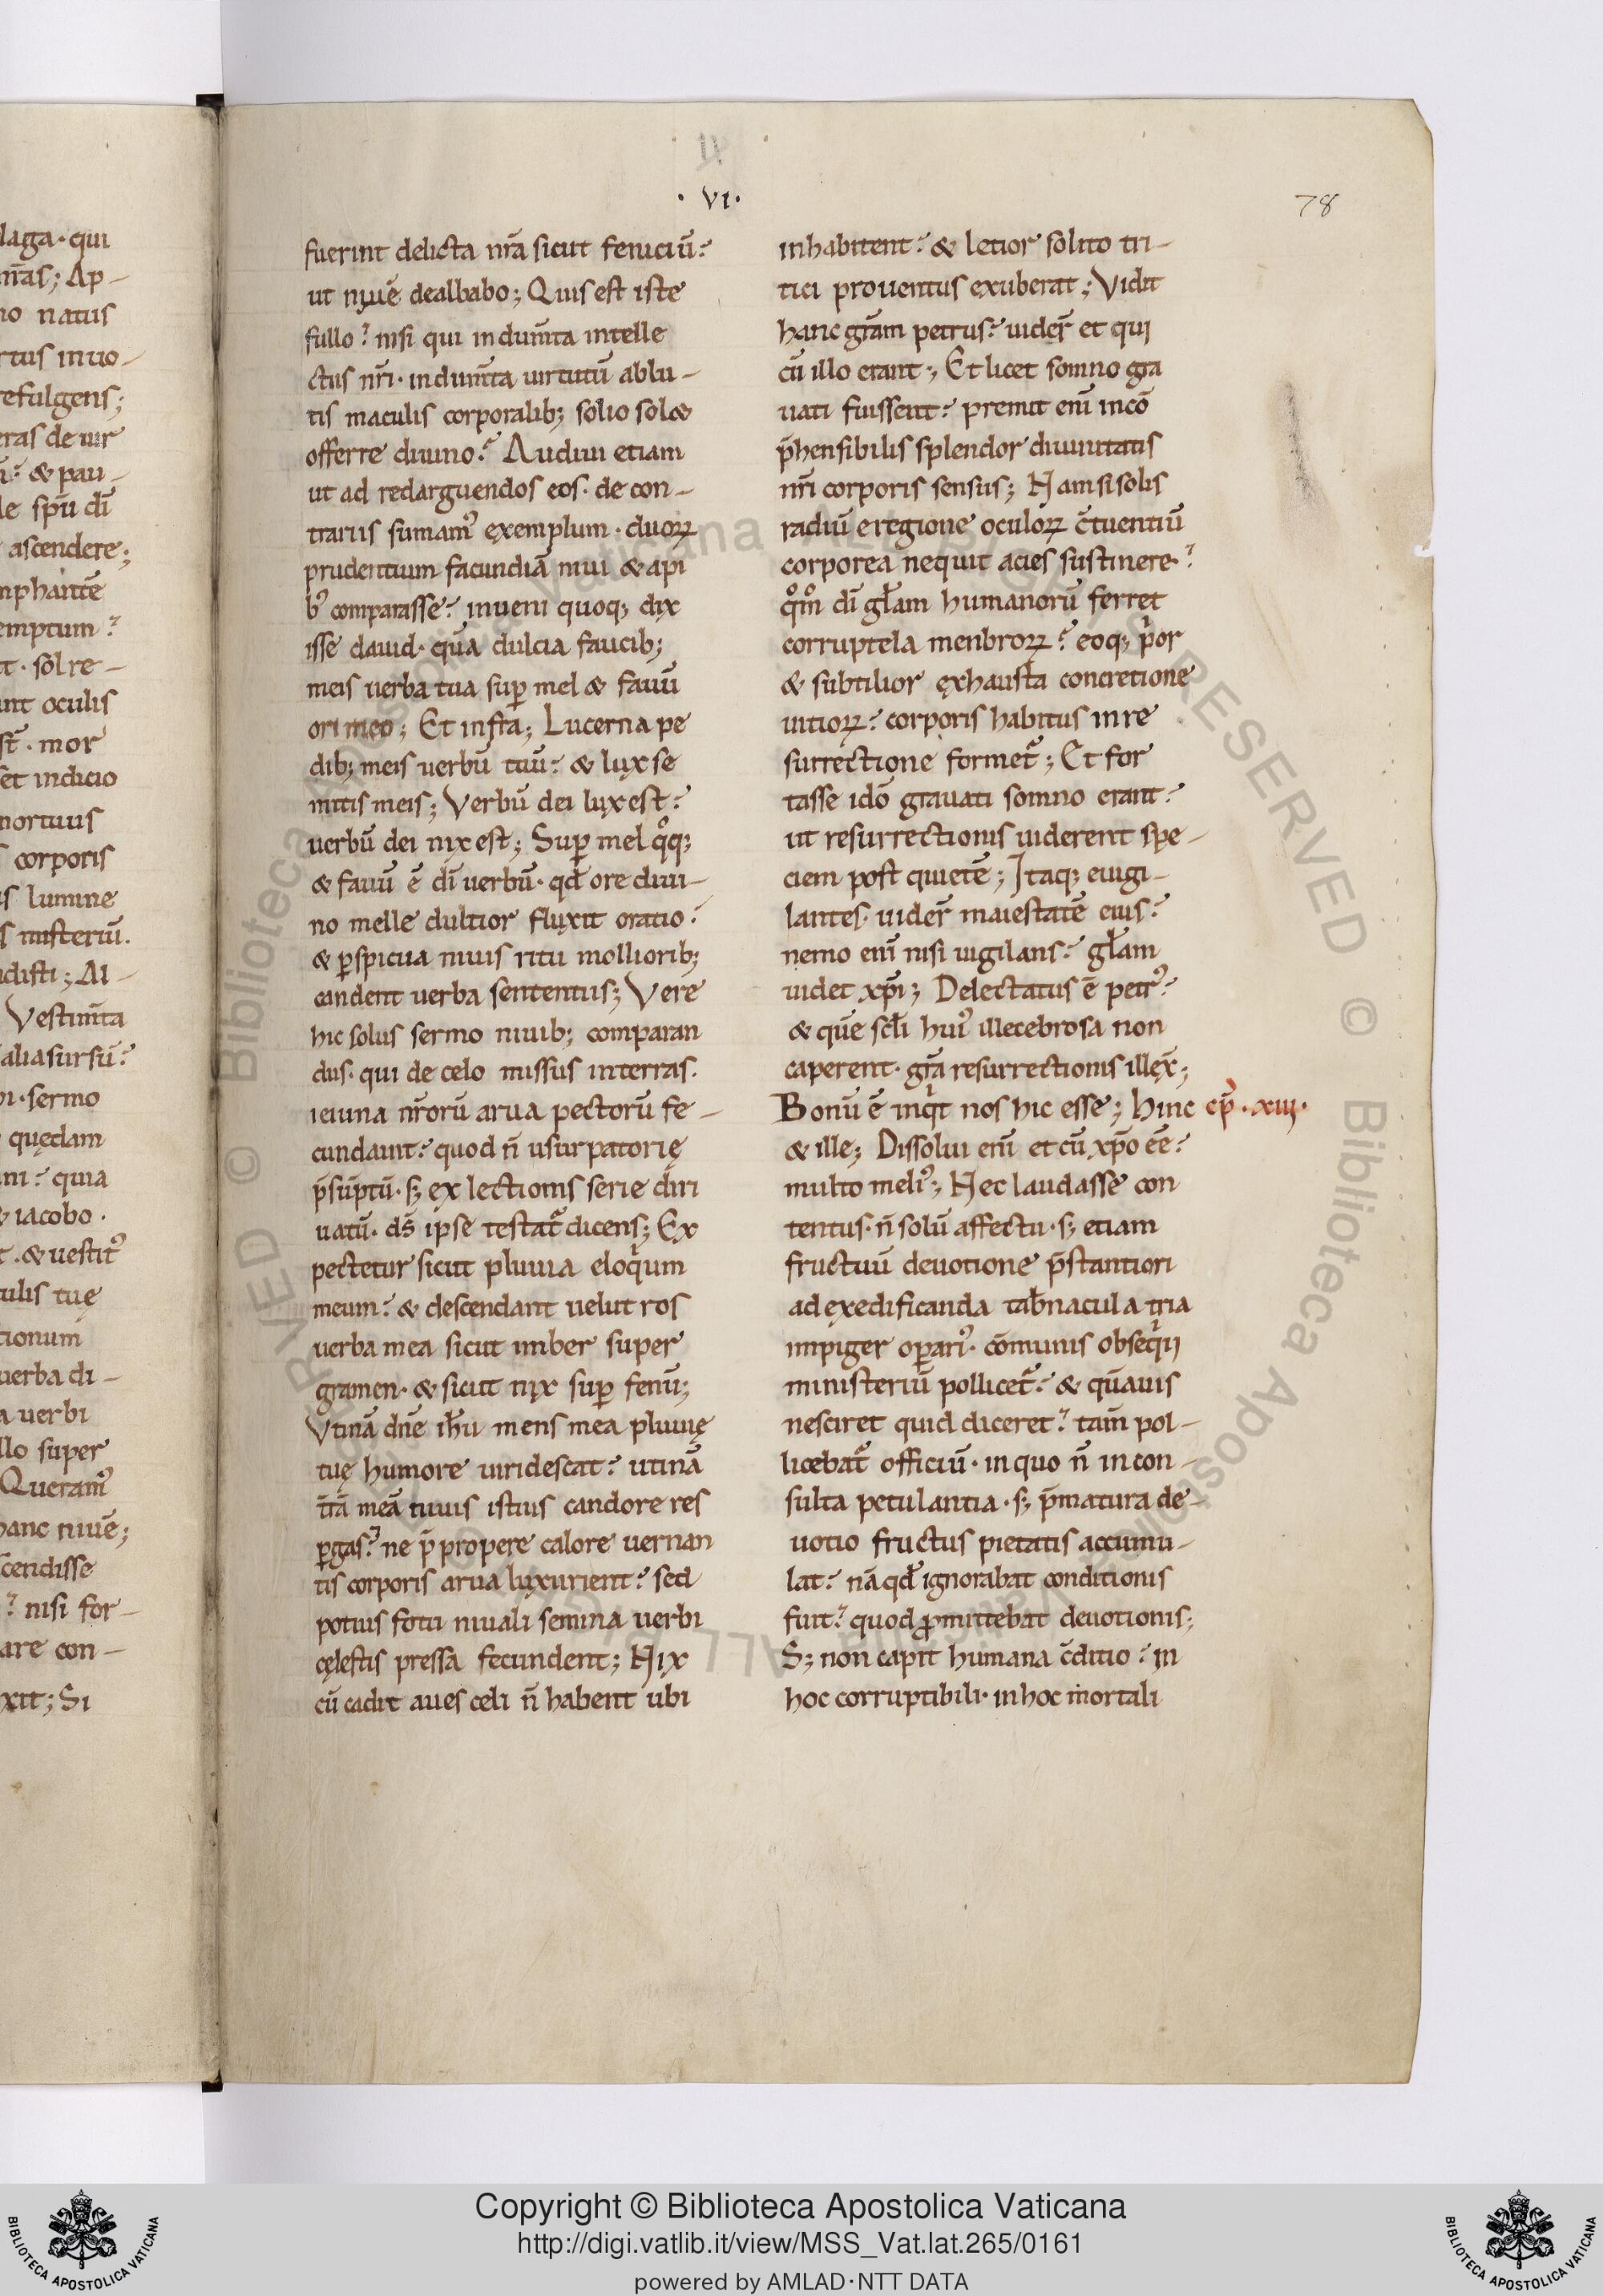 laga · qui
nr̄as; Ap-
no natus
rtus inuo-
refulgens;
eras de uir
& pau-
de spū dī
ascendere;
mphantē
emptum?
t · sol re-
unt oculis
st̄ · mor
set indicio
mortuus
corporis
lumine
misteriū.
idisti; Al-
Vestim̄ta
alia sursū?
sermo
quędam
ni? quia
& iacobo ·
t · & uestit᷒
ulis tuę
tionum
uerba di-
a uerbi
llo super
Queram᷒
hanc niuē;
cendisse
? nisi for-
are con-
xit; Si
II
· VI ·
78
fuerint delicta nr̄a sicut feniciū?
ut niuē dealbabo; Quis est iste
fullo? nisi qui indum̄ta intelle
ctus nr̄i · indum̄ta uirtutū ablu-
tis maculis corporalib; solio soleo
offerre diuino? Audiui etiam
ut ad redarguendos eos · de con-
trariis sumam᷒ exemplum · duoꝝ
prudentium facundiā niui & api
b᷒ comparasse? inueni quoq; dix
isse dauid · quā dulcia faucib;
meis uerba tua suꝑ mel & fauū
ori meo; Et infra; Lucerna pe
dib; meis uerbū tuū? & lux se
mitis meis; Verbū dei lux est?
uerbū dei nix est; Suꝑ mel qͦq;
& fauū ē dī uerbū · qd̄ ore diui-
no melle dultior fluxit oratio?
& ꝑspicua niuis ritu molliorib;
candent uerba sententiis; Vere
hic solus sermo niuib; comparan
dus · qui de celo missus interras.
ieiuna nr̄orū arua pectorū fe-
cundauit? quod n̄ usurpatorię
p̄sūptū · s; ex lectionis serie diri
uatū · ds̄ ipse testat᷑ dicens; Ex
pectetur sicut pluuia eloqͥum
meum? & descendant uelut ros
uerba mea sicut imber super
gramen · & sicut nix suꝑ fenū;
Vtinā dn̄e ih̄u mens mea pluuię
tuę humore uiridescat? utinā
t̄rā meā niuis istius candore res
ꝑgas? ne p̄propere calore uernan
tis corporis arua luxurient? sed
potius fotu niuali semina uerbi
cęlestis pressa fecundent; Nix
cū cadit aues celi n̄ habent ubi
inhabitent? & letior solito tri-
tici prouentus exuberat; Vidit
hanc gr̄am petrus? uider̄ et qui
cū illo erant; Et licet somno gra
uati fuissent? premit enī incō
p̄hensibilis splendor diuinitatis
nr̄i corporis sensus; Nam si solis
radiū eregione oculoꝝ c̄tuentiū
corporea nequit acies sustinere?
qͦm̊ dī gl̄am humanorū ferret
corruptela menbroꝝ? eoq; pͥor
& subtilior exhausta concretione
uitioꝝ? corporis habitus in re
surrectione format᷑; Et for
tasse idō grauati somno erant?
ut resurrectionis uiderent spe-
ciem post quietē; Itaq; euigi-
lantes · uider̄ maiestatē eius?
nemo enī nisi uigilans? gl̄am
uidet xp̄i; Delectatus ē petr᷒?
& quē scl̄i hui᷒ illecebrosa non
caperent · gr̄a resurrectionis illex̄;
Bonū ē inqͥt nos hic esse; hinc cp̄ · xiij ·
& ille; Dissolui enī et cū xp̄o eē?
multo meli᷒; Nec laudasse con
tentus · n̄ solū affectu · s; etiam
fructuū deuotione p̄stantiori
ad exedificanda tab̄nacula tria
impiger oꝑari᷒ · cōmunis obseqͥj
ministeriū pollicet᷑? & quāuis
nesciret quid diceret? tam̄ pol-
licebat᷑ officiū · in quo n̄ incon-
sulta petulantia · s; p̄matura de-
uotio fructus pietatis accumu-
lat? nā qd̄ ignorabat conditionis
fuit? quod ꝓmittebat deuotionis;
S; non capit humana c̄ditio? in
hoc corruptibili · in hoc mortali
Copyright © Biblioteca Apostolica Vaticana
http://digi.vatlib.it/view/MSS_Vat.lat.265/0161
powered by AMLAD·NTT DATA
BIBLIOTECA APOSTOLICA VATICANA
BIBLIOTECA APOSTOLICA VATICANA